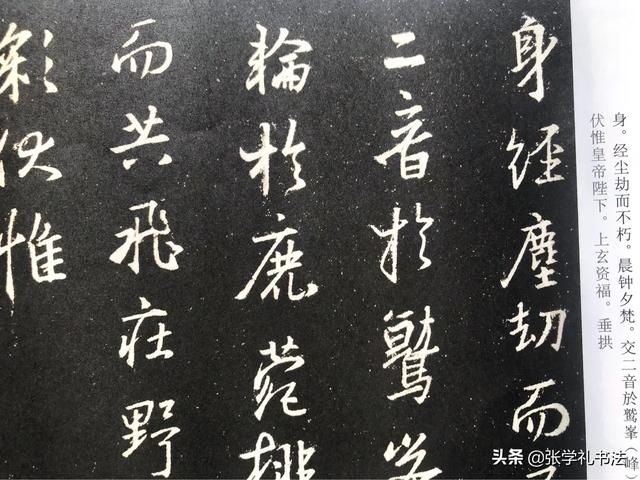 身。经尘劫而不朽。晨钟夕梵。交二音於鹫峯（峰
伏惟皇帝陛下。上玄资福。垂拱
身經塵劫而
二音於鷲峯
輪於鹿苑排
而共飛庄野
彩伏惟
头条 @张学礼书法